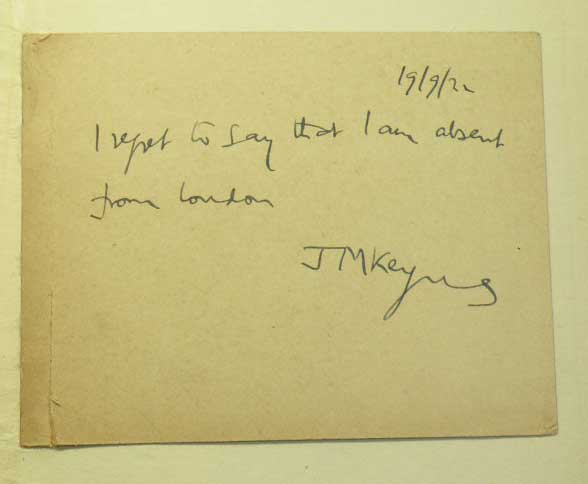 19/9/22
I regret to say that I am absent
from London
JMKeynes